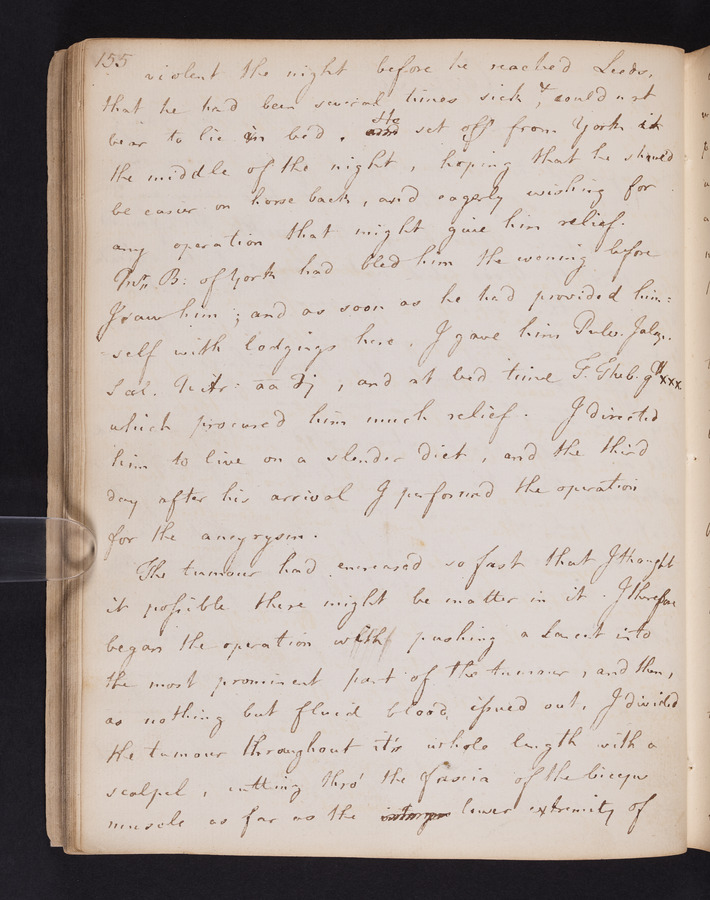 155
violent the night before he reached Leeds,
that he had been several times sick, & could not
bear to lie in bed. He set off from York in
the middle of the night, hoping that he should
be easier on horse back, and eagerly wishing for
any operation that might give him relief.
Mr. B: of York had bled him the evening before
I saw him; and as soon as he had provided him=
self with lodgings here, I gave him Pulv. Jalap.
Sal. Nitr: aa Ʒj, and at bed time T. Theb. gtt xxx.
which procured him much relief. I directed
him to live on a slender diet, and the third
day after his arrival I performed the operation
for the aneyrysm.
The tumour had encreased so fast that I thought
it possible there might be matter in it. I therefore
began the operation with pushing a Lancet into
the most prominent part of the tumour, and then,
as nothing but fluid blood issued out, I divided
the tumour throughout it's whole length with a
scalpel, cutting thro' the fascia of the biceps
muscle as far as the lower extremity of